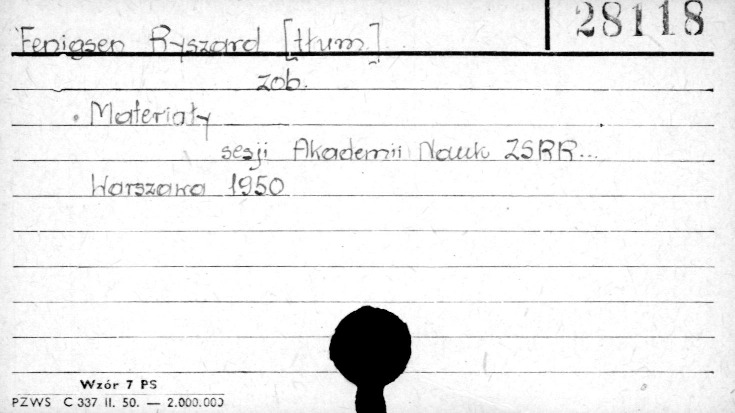 28118
Fenigsen Ryszard [tłum]
zob.
Materiały
sesji Akademii Nauk ZSRR...
Warszawa 1950
Wzór 7 PS
PZWS C 337 II. 50. — 2.000.000